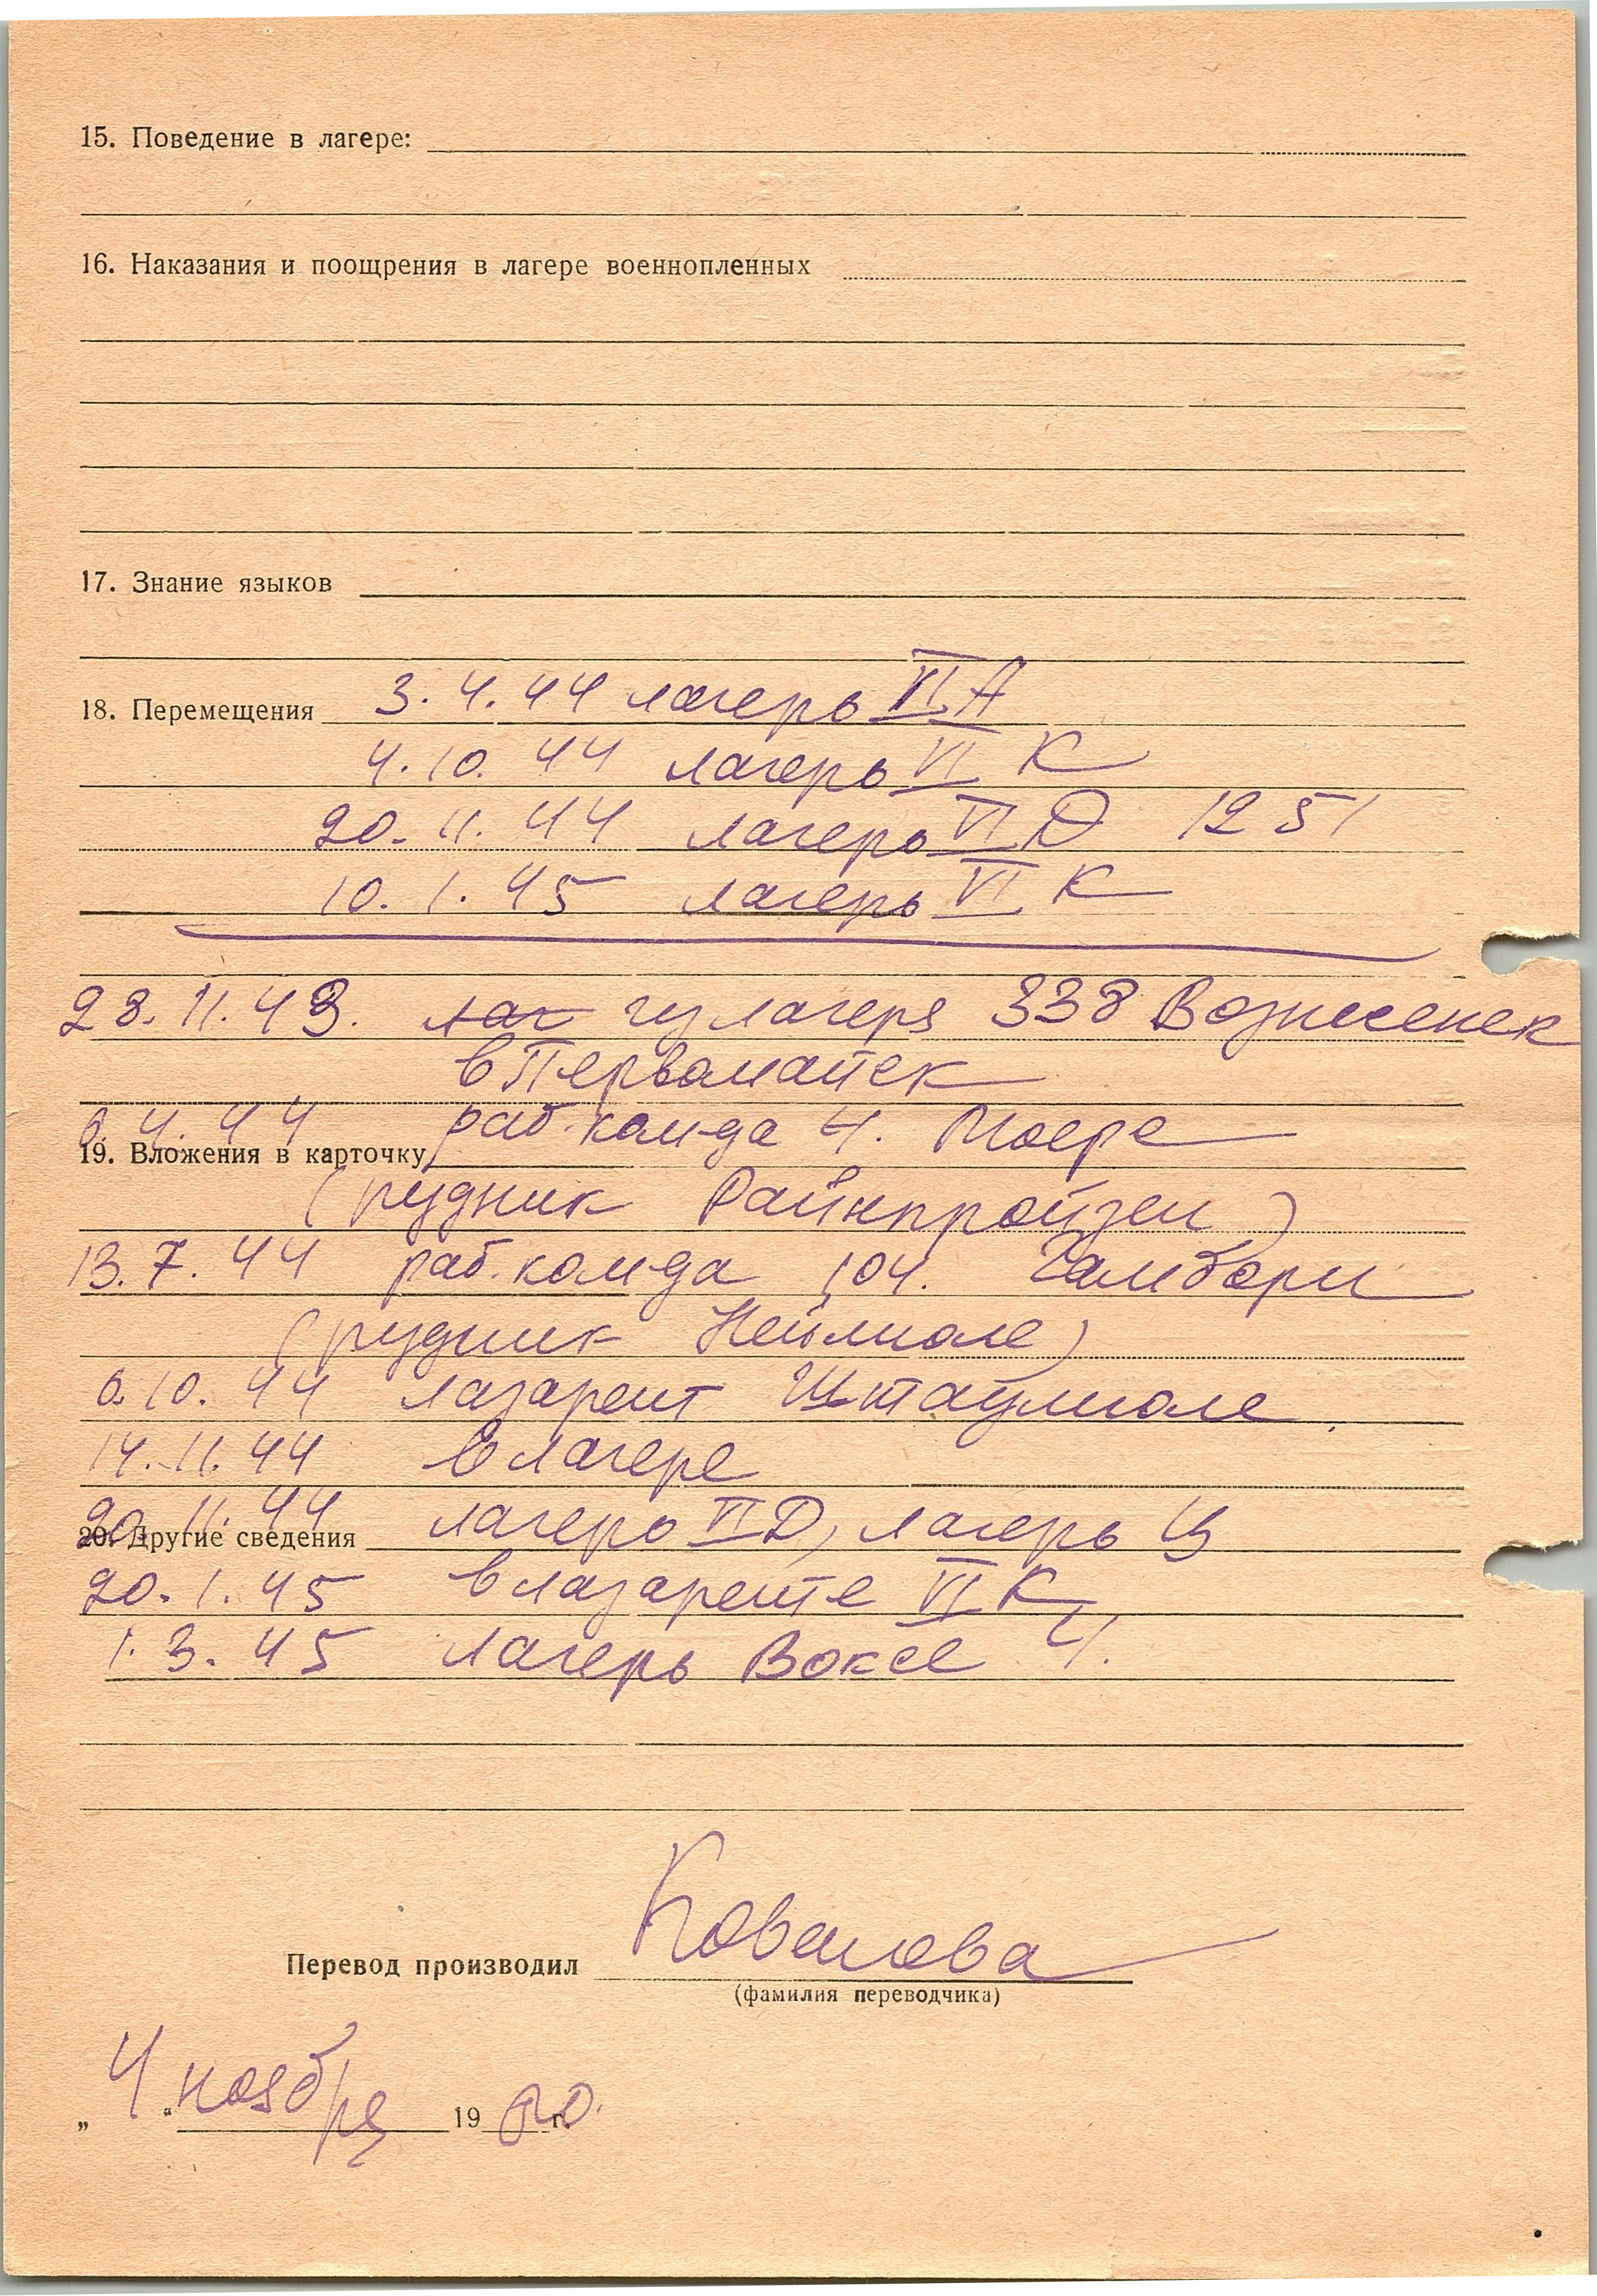 15. Поведение в лагере:
16. Наказания и поощрения в лагере военнопленных
17. Знание языков
18. Перемещения 3.4.44 лагерь VI A
4.10.44 лагерь VI К
20.11.44 лагерь VI D 1251
10.1.45 лагерь VI К
23.11.43. лаг из лагеря 338 Вознесенск
в Первомайск
6.4.44 раб. ком-да 4. Моерс
19. Вложения в карточку
(рудник Райнпройзен)
13.7.44 раб. ком-да 104. Гамборн
(рудник Неймюле)
6.10.44 лазарет Штаумюле
14.11.44 в лагере
20.11.44 лагерь VI D, лагерь Ц
20. Другие сведения
20.1.45 в лазарете VI К
1.3.45 лагерь Воксе 4.
Перевод производил Ковалова
(фамилия переводчика)
„ 4 “ ноября 1960 г.